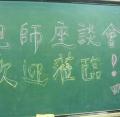 師座談會
歡迎蒞臨!